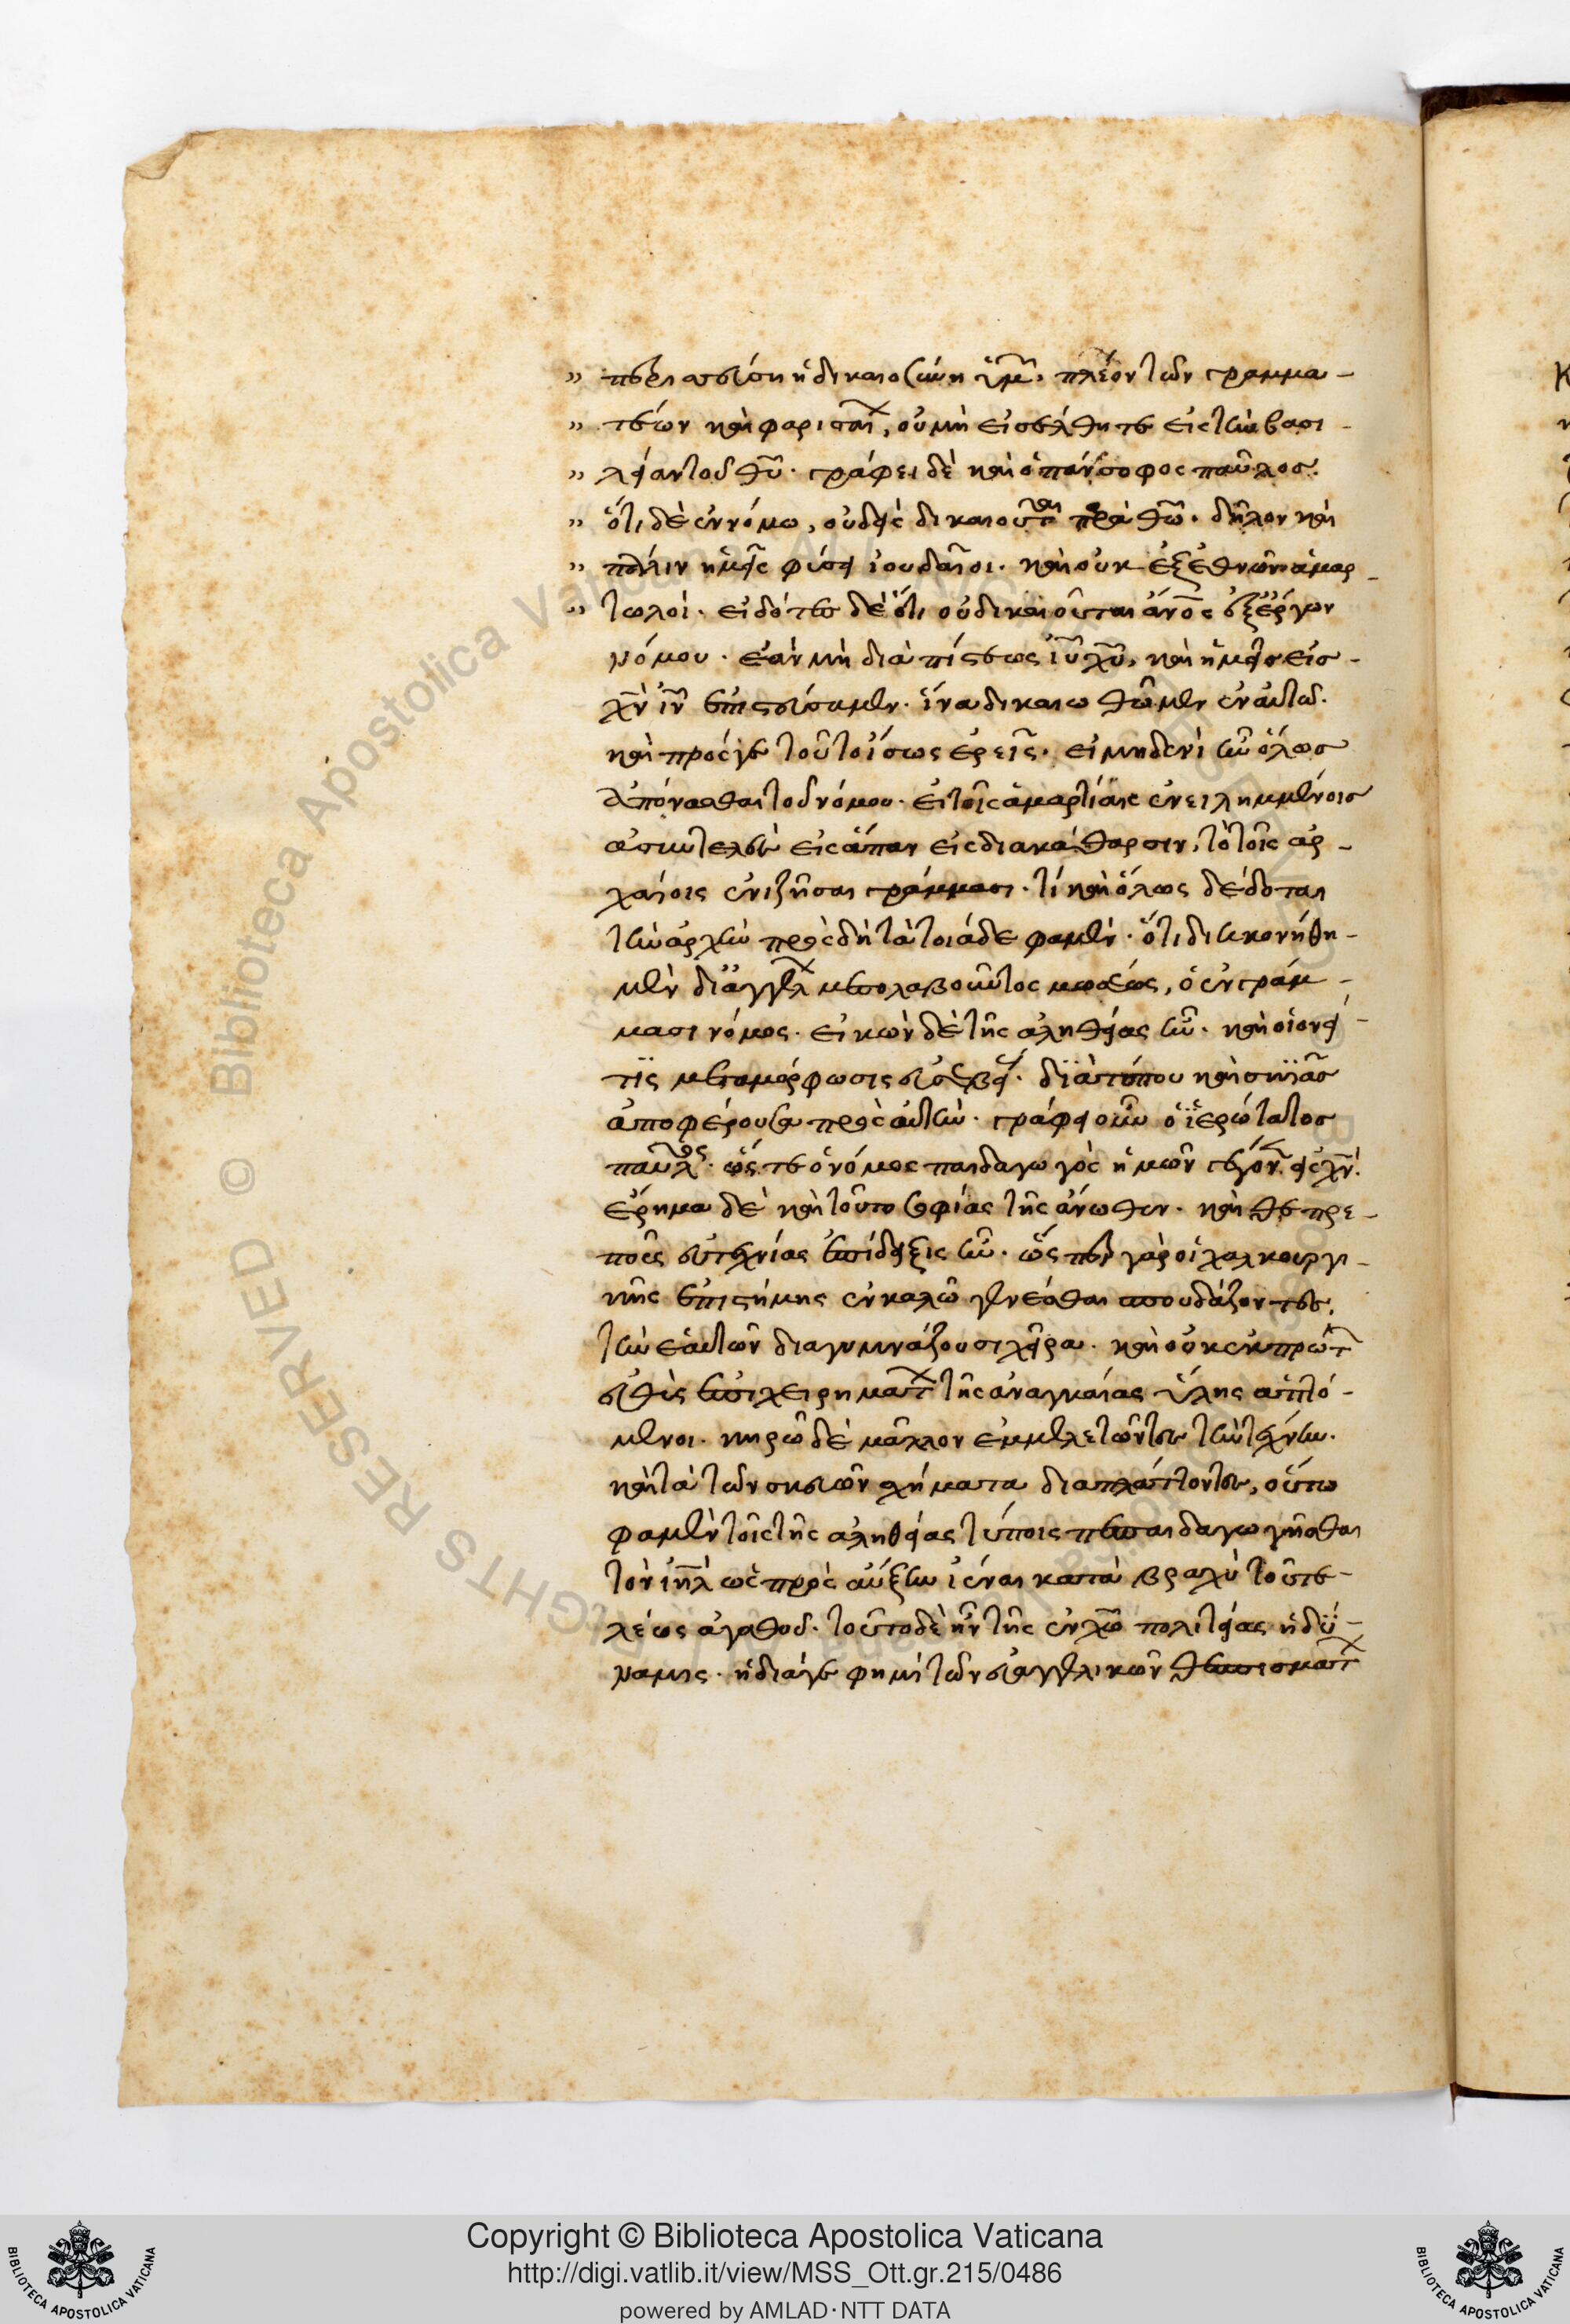 ” περισσεύση ἡ δικαιοσύνη ὑμῶ, πλέον τῶν γραμμα-
” τέων καὶ φαρισαί, οὐ μὴ εἰσέλθητε εἰς τὴν βασι-
” λείαν τοῦ θυ̅. γράφει δὲ καὶ ὁ πάνσοφος παῦλος.
” ὅτι δὲ ἐν νόμω, οὐδεὶς δικαιοῦται παρὰ θω̅. δῆλον καὶ
” πάλιν ἡμεῖς φύσει ἰουδαῖοι. καὶ οὐκ ἐξ ἐθνῶν ἁμαρ-
” τωλοί. εἰδότες δὲ ὅτι οὐ δικαιοῦται ἄνο̅ς ἐξ ἔργων
νόμου. ἐὰν μὴ διὰ πίστεως ἰυ̅ χυ̅, καὶ ἡμεῖς εἰς
χν̅ ἰν̅ ἐπιστεύσαμεν. ἵνα δικαιωθῶμεν ἐν αὐτῶ.
καὶ πρός γε τοῦτο ἴσως ἐρεῖς. εἰ μηδενὶ ἦν ὅλως
ἀπόνασθαι τοῦ νόμου. εἰ τοῖς ἁμαρτίαις ἐνειλημμένοις
ἀσυντελὲς εἰς ἅπαν εἰς διακάθαρσιν, τὸ τοῖς ἀρ-
χαίοις ἐνιζῆσαι γράμμασι. τί καὶ ὅλως δέδοται
τὴν ἀρχὴν πρὸς δὴ τὰ τοιάδε φαμέν. ὅτι διηκονήθη-
μὲν δι ἀγγέλ μεσολαβοῦντος μωσέως, ὁ ἐν γράμ-
μασι νόμος. εἰκὼν δὲ τῆς ἀληθείας ἦν. καὶ οἱονεί
τις μεταμόρφωσις εὐσεβεί. διὰ τύπου καὶ σκιᾶς
ἀποφέρουσα πρὸς αὐτήν. γράφει οὖν ὁ ἱερώτατος
παῦλος. ὥστε ὁ νόμος παιδαγωγὸς ἡμῶν γέγον εἰς χν̅.
εὕρημα δὲ καὶ τοῦτο σοφίας τῆς ἄνωθεν. καὶ θεπρε-
ποῦς εὐτεχνίας ἐπίδειξις ἦν. ὥσπερ γὰρ οἱ χαλκουργι-
κῆς ἐπιστήμης ἐν καλῶ γενέσθαι σπουδάζοντες,
τὴν ἑαυτῶν διαγυμνάζουσι χεῖρα. καὶ οὐκ ἐν πρώτ
εὐθὺς ἐπιχειρηματ τῆς ἀναγκαίας ὕλης ἁπτό-
μενοι. κηρῶ δὲ μᾶλλον ἐμμελετῶντες τὴν τέχνην.
καὶ τὰ τῶν σκευῶν σχήματα διαπλάττοντες, οὕτω
φαμὲν τοῖς τῆς ἀληθείας τύποις πεπαιδαγωγῆσθαι
τὸν ἰηλ̅ ὡς πρὸς αὔξην ἰέναι κατὰ βραχὺ τοῦ τε-
λέως ἀγαθοῦ. τοῦτο δὲ ἦν τῆς ἐν χω̅ πολιτείας ἡ δύ-
ναμις. ἡ διά γε φημὶ τῶν εὐαγγελικῶν θεσπισματ
Copyright © Biblioteca Apostolica Vaticana
http://digi.vatlib.it/view/MSS_Ott.gr.215/0486
powered by AMLAD·NTT DATA